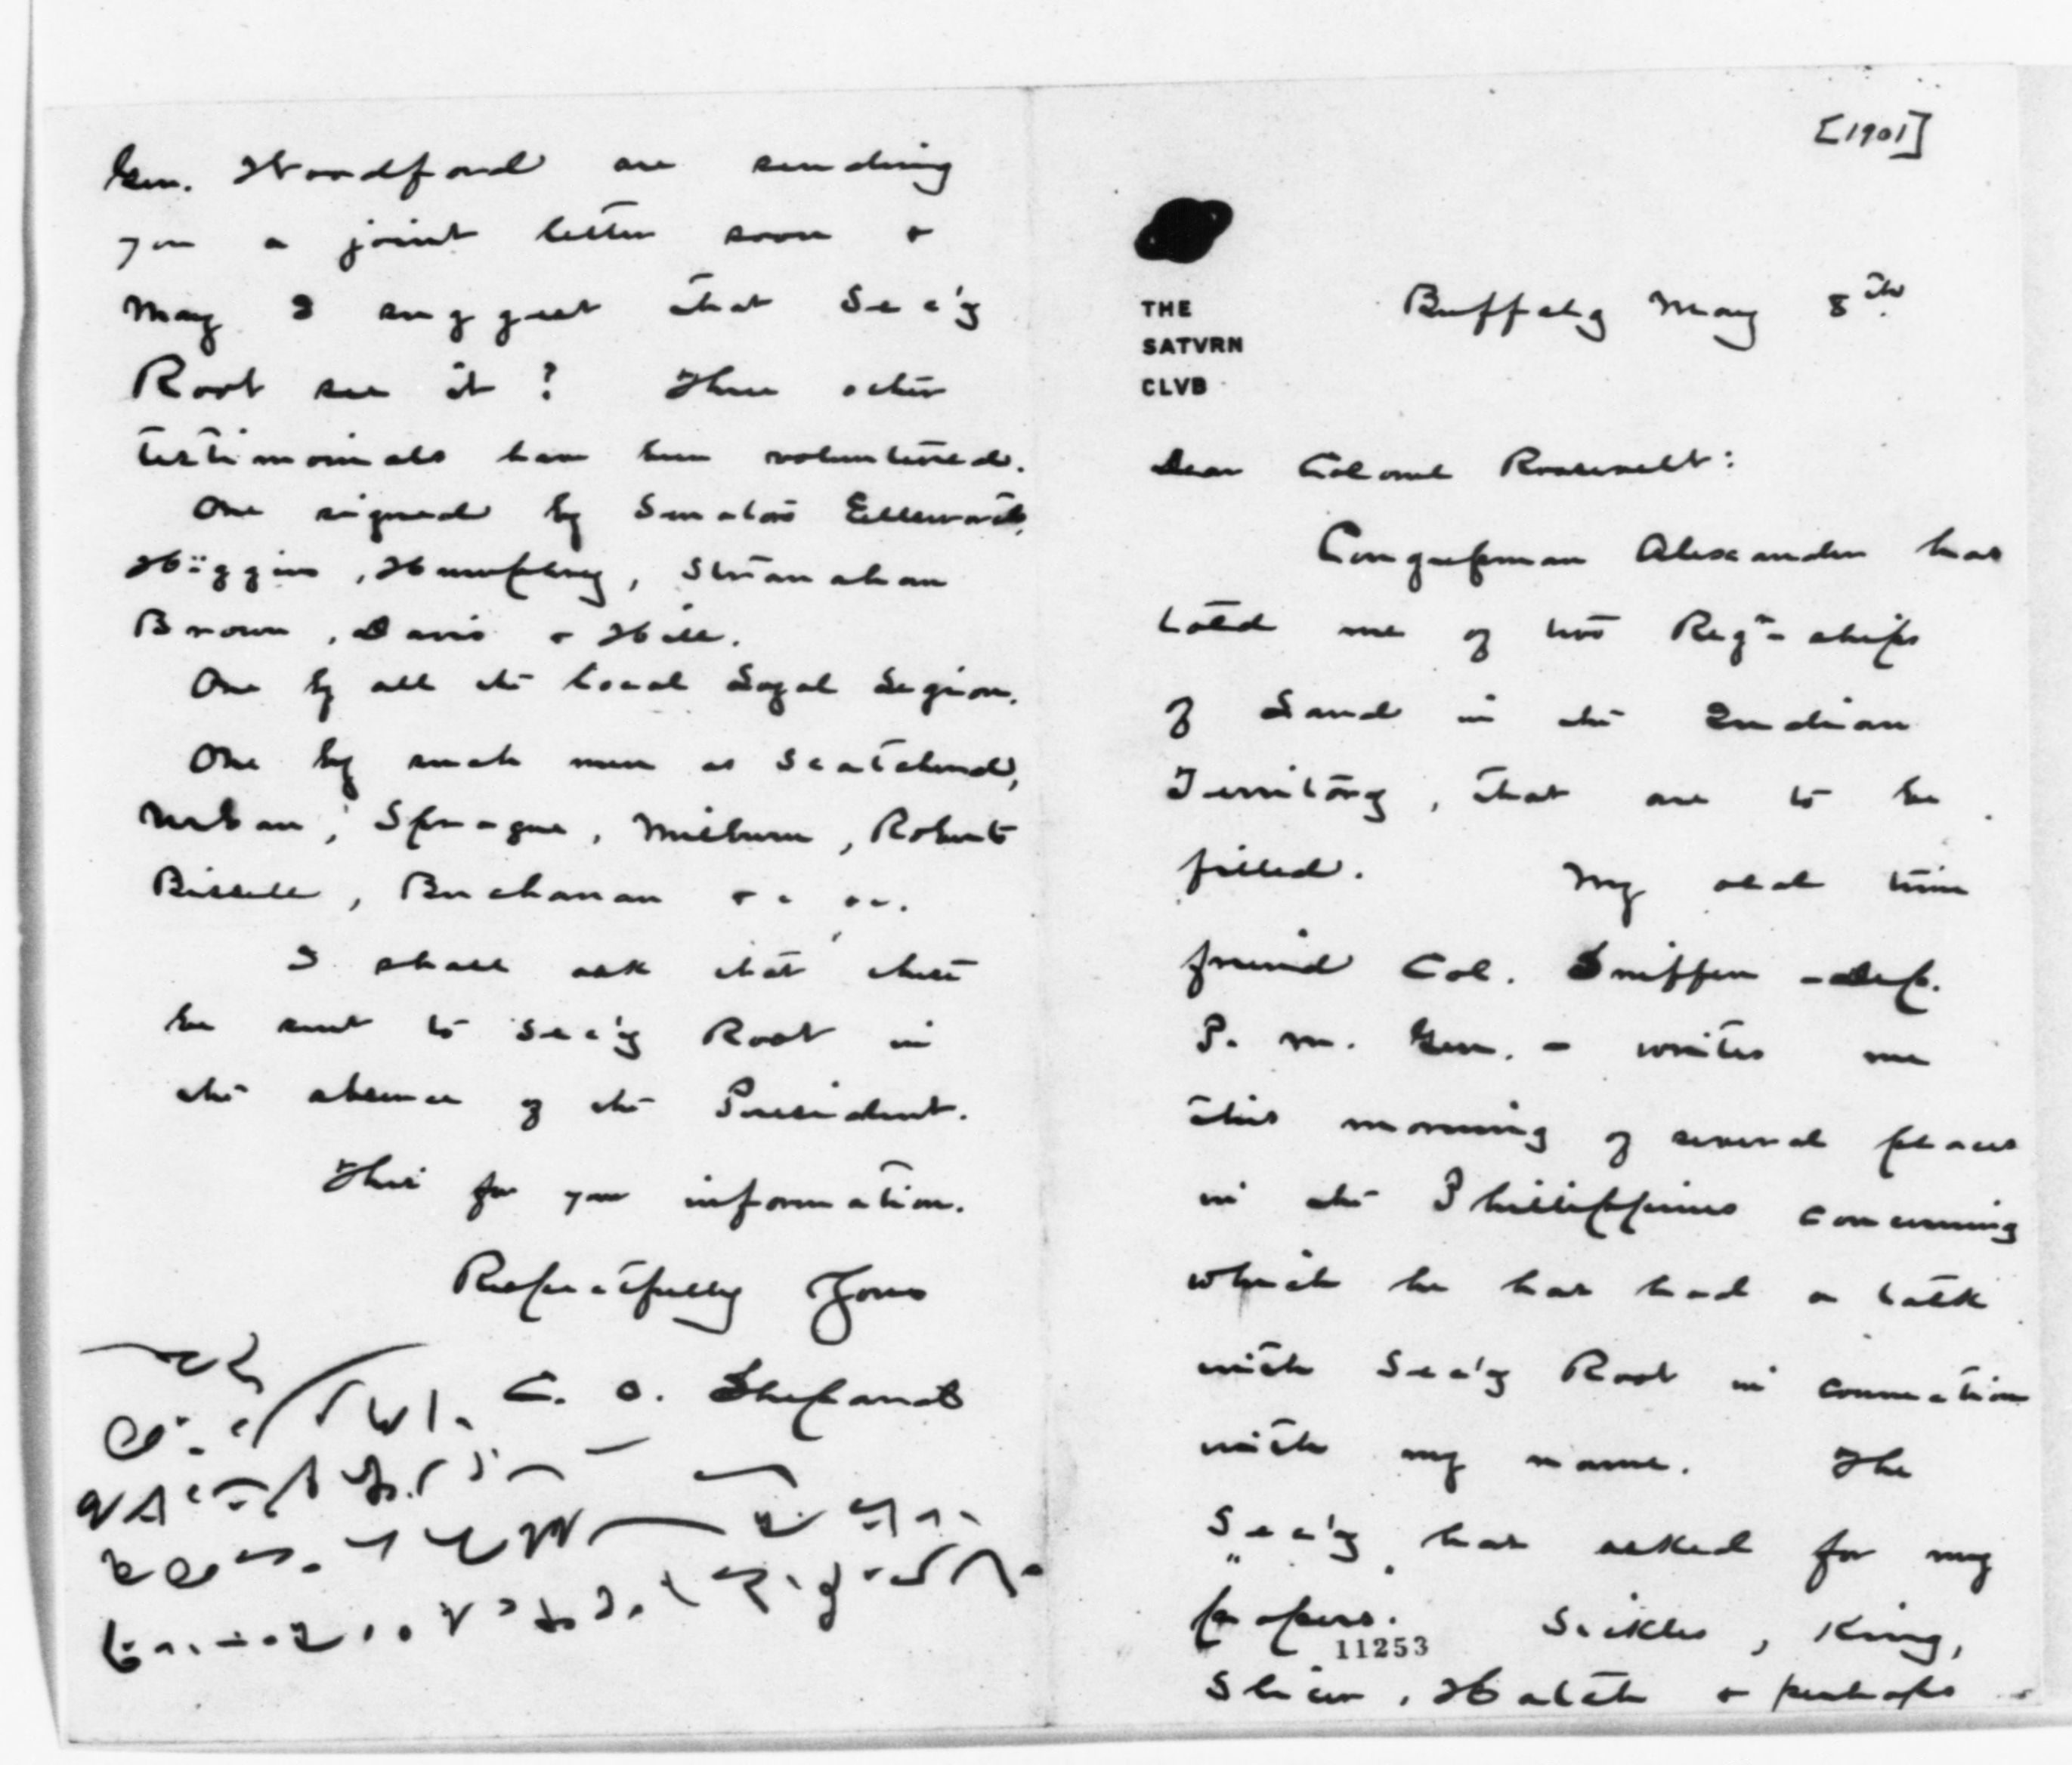 [1901]
THE
SATVRN
CLVB
Buffalo May 8th
Dear Colonel Roosevelt:
Congressman Alexander has
told me of two Reg'r-ships
of Land in the Indian
Territory, that are to be
filled. My old time
friend Col. Sniffen - Dep.
P. M. Gen. - writes me
this morning of several places
in the Phillippines concerning
which he has had a talk
with Sec'y Root in connection
with my name. The
Sec'y has asked for my
papers. Sickles, King,
Slicer, Hatch & perhaps
11253
Gen. Woodford are sending
you a joint letter soon &
may I suggest that Sec'y
Root see it? Three other
testimonials have been volunteered.
One signed by Senators Ellsworth,
Higgins, Humphrey, Stranahan
Brown, Davis & Hill.
One by all the local Loyal Legion.
One by such men as Scatcherd,
Urban, Sprague, Milburn, Roberts
Bissell, Buchanan &c &c.
I shall ask that these
be sent to Sec'y Root in
the absence of the President.
This for your information.
Respectfully Yours
C. O. Shepard